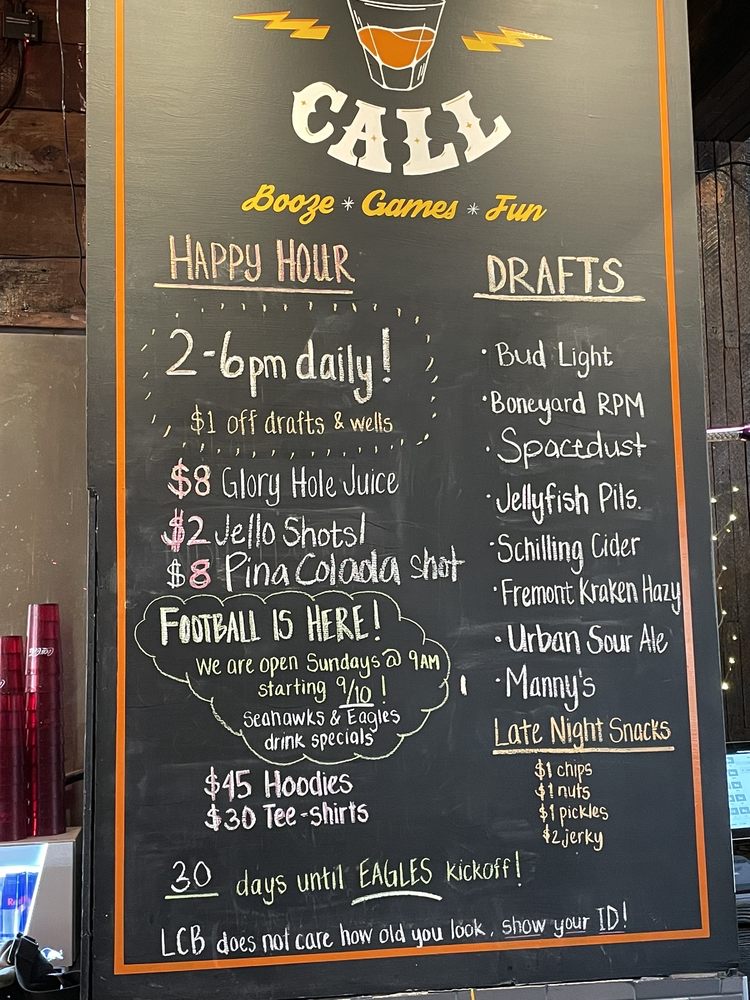 CALL
Booze * Games * Fun
HAPPY HOUR
2-6pm daily!
$1 off drafts & wells
$8 Glory Hole Juice
$2 Jello Shots!
$8 Pina Colada shot
FOOTBALL IS HERE!
We are open Sundays @ 9AM
starting 9/10!
Seahawks & Eagles
drink specials
$45 Hoodies
$30 Tee-shirts
DRAFTS
• Bud Light
• Boneyard RPM
• Spacedust
• Jellyfish Pils.
• Schilling Cider
• Fremont Kraken Hazy
• Urban Sour Ale
• Manny's
Late Night Snacks
$1 chips
$1 nuts
$1 pickles
$2 jerky
30 days until EAGLES kickoff!
LCB does not care how old you look, show your ID!
Coca-Cola